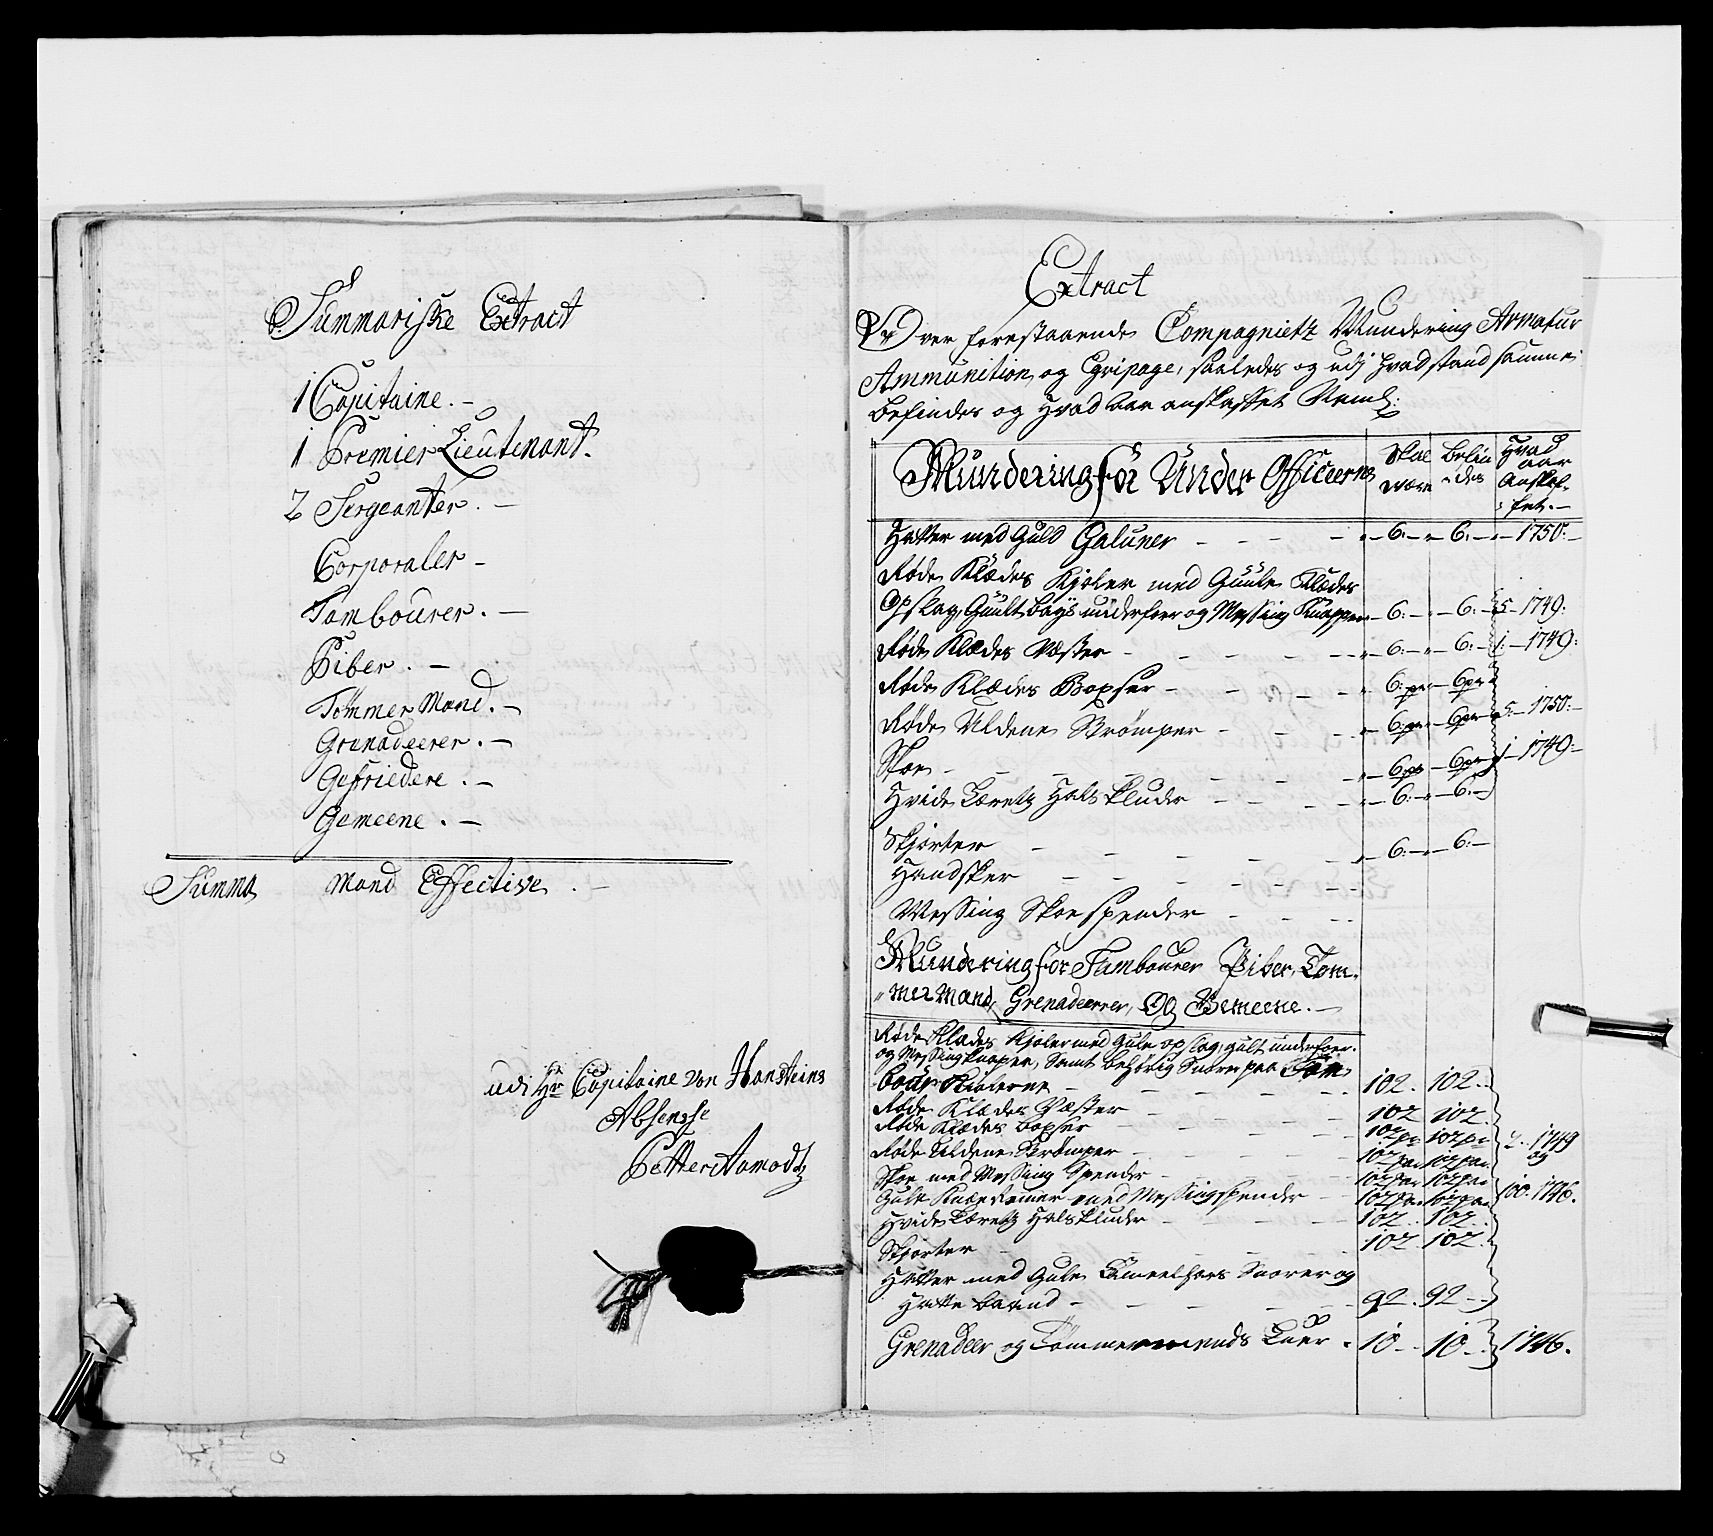 Summariske Extract
1 Capitaine. -
1 Premier Lieutenant.
2 Sergeanter. -
Corporaler -
Tambourer. -
Piber. -
Tømmer Mand. -
Grenadeerer. -
Gefriedere. -
Gemeene. -
Summa Mand Effective. -
udi Hr Capitaine Von Hansteins
Absense
Petter Aamodt
Extract
Over forestaaende Compagnietz Mundering Armatur
Ammunition og Eqvipage, saaledes og udj hvad stand samme
befindes og hvad aar anskaffet Neml:
Mundering for Under Officeerne
Skal være
Befin-des
Hvad aar Anskaf-fet. -
Hatter med Guld Galuner - - - - 6:- - 6:- - 1750:-
Røde Klædes Kjoler med Guule Klædes
Opslag, Guult bays underfoer og Messing Knapper - 6:- - 6:- 5 - 1749:
Røde Klædes Væster - - - - 6:- - 6:- 1:- 1749:
Røde Klædes Boxser - - - - 6:pr - 6pr
Røde Uldene Strømper - - - 6:pr - 6pr 5:- 1750:-
Skoe - - - - 6pr - 6pr 1 - 1749:-
Hvide Læretz Hals Kluder - - - - 6:- - 6:-
Skjorter - - - - 6:- - 6:-
Handsker - - - -
Messing Skoe spender - - -
Mundering for Tambourer Piber, Tøm-
mermand, Grenadeerer, Og Gemeene. -
Røde Klædes Kjoler med Gule opslag, gult underfoer
og Messing Knaper, Samt behørig Snore paa Tam
bour Kiolerne - - - - 102. 102.
Røde Klædes Væster - - - 102 102.
Røde Klædes boxser - - - 102pr 102pr
Røde Uldene Strømper - - - 102par 102par 2.. 1749
og
Skoe med Messing Spender - - - 102par 102par
Gule Knæe Remer med Messing spender - 102par 102par 100. 1746.
Hvide Læretz Halskluder - - - 102. 102.
Skjorter - - - 102 102.
Hatter med Gule Cameelhars Snorer og
Hatte baand - - - 92. 92.
Grenadeer og Tømmermends Luer - 10 - 10 - 1746.